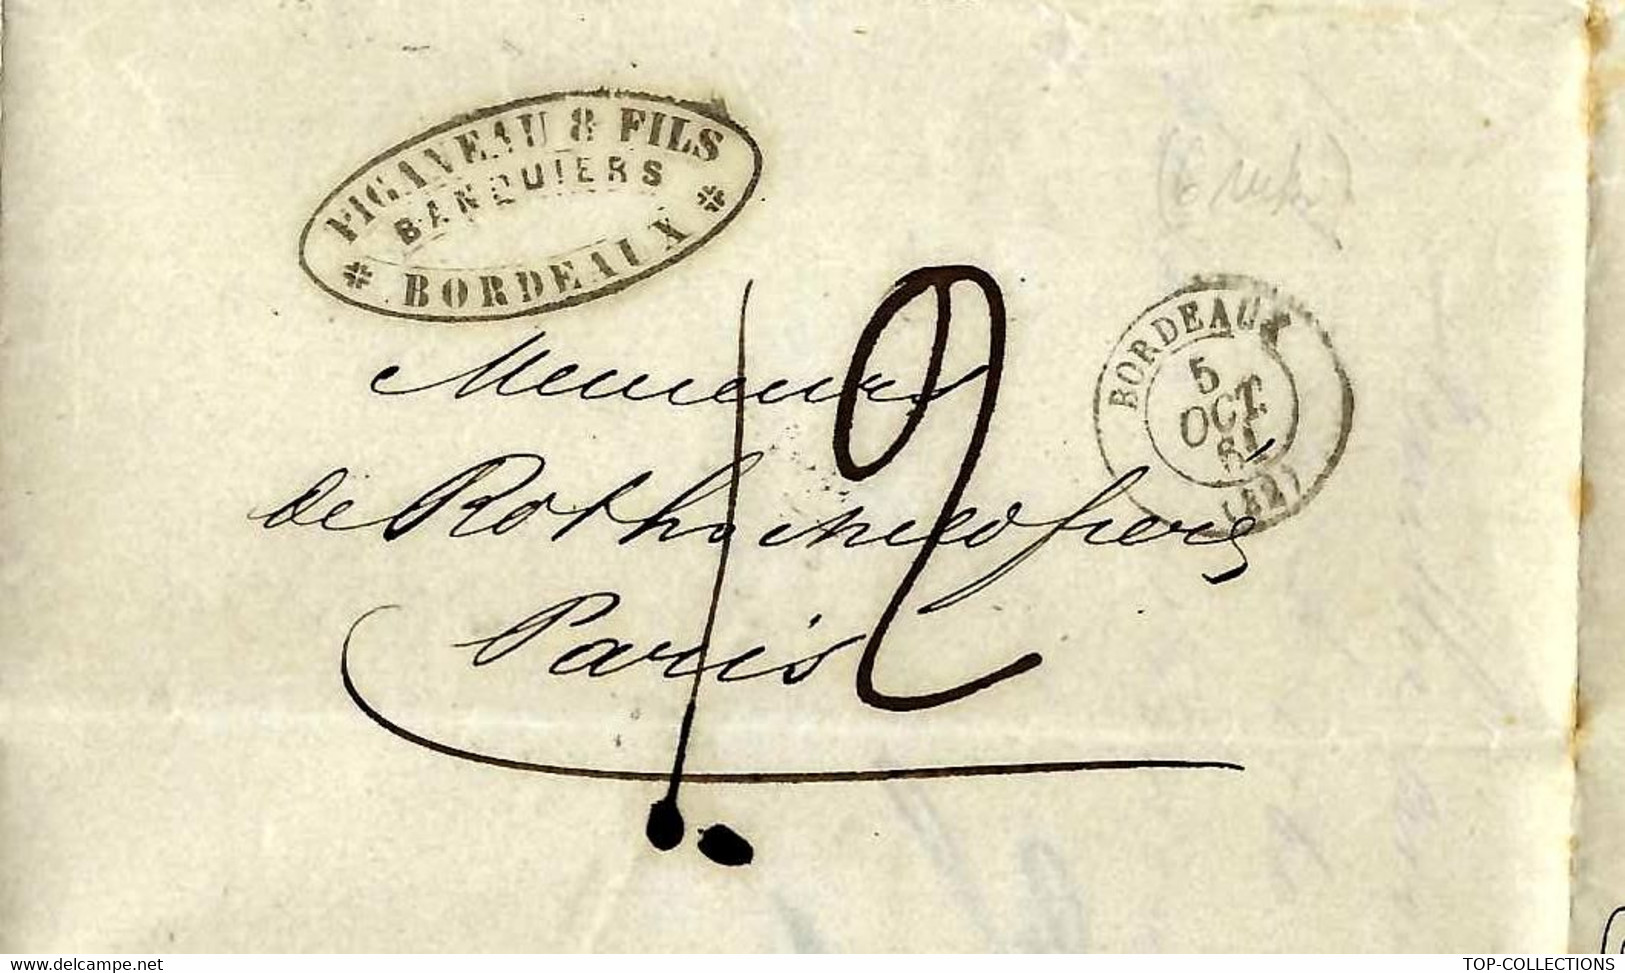 PIGANEAU & FILS
BANQUIERS
BORDEAUX
BORDEAUX
5
OCT.
61
(32)
12
Messieurs
de Rothschild frères
Paris
www.delcampe.net
TOP-COLLECTIONS